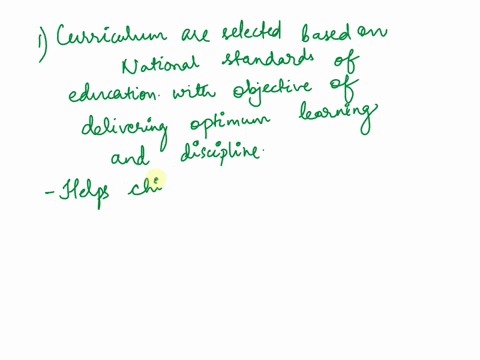 1) Curriculum are selected based on
National standards of
education with objective of
delivering optimum learning
and discipline.
- Helps chi